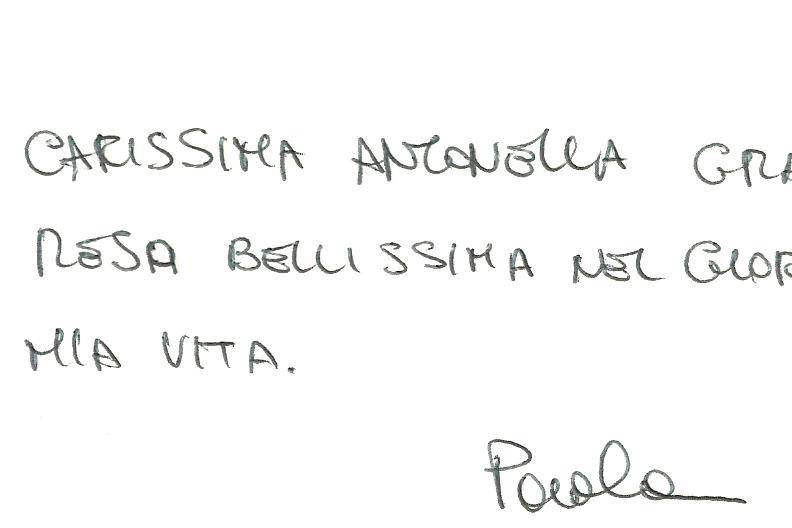 CARISSIMA ANTONELLA GRA
RESA BELLISSIMA NEL GIOR
MIA VITA.
Paola